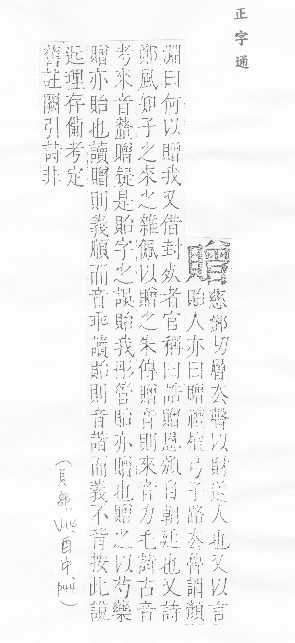 正字通
贈 慈鄧切層去聲以財送人也又以言
貽人亦曰贈禮檀弓子路去魯謂顏
淵曰何以贈我又借封歿者官稱曰誥贈恩頒自朝廷也又詩
鄭風知子之來之雜佩以贈之朱傳贈音則來音力毛詩古音
考來音釐贈疑是貽字之誤貽我彤管貽亦贈也贈之以芍藥
贈亦貽也讀贈則義順而音乖讀貽則音諧而義不背按此說
近理存備考定
舊註闕引詩非
(貝部 酉中